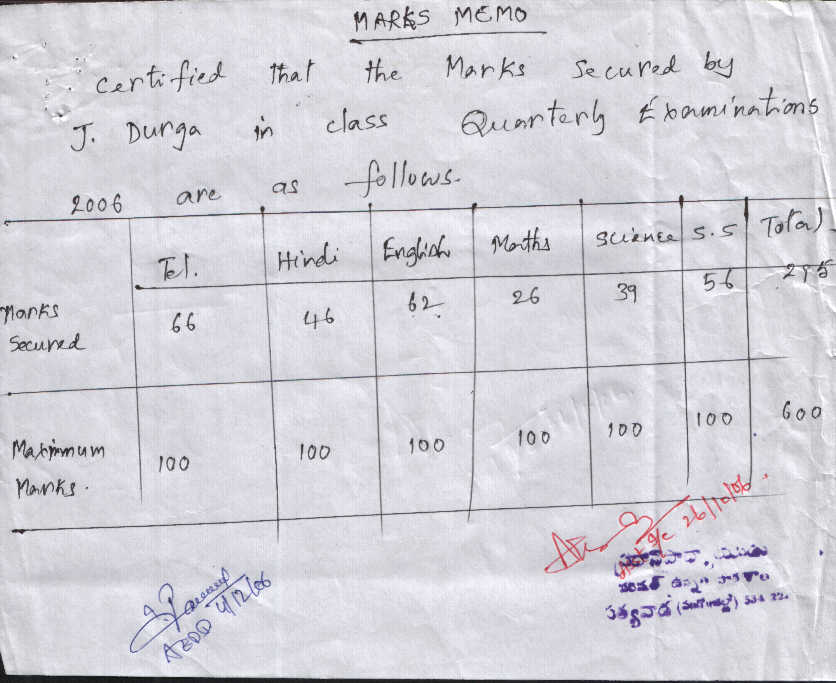 MARKS MEMO
Certified that the Marks Secured by
J. Durga in class Quarterly Examinations
2006 are as follows.
Tel. Hindi English Maths Science S.S Total
Marks Secured 66 46 62 26 39 56 295
Maximum Marks. 100 100 100 100 100 100 600
26/10/06.
4/12/06
ఉన్నత పాఠశాల
సత్యవాడ